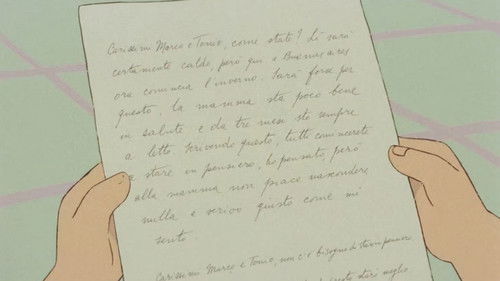 Carissimi Marco e Tonio, come state? Lì sarà
certamente caldo, però qui a Buenos Aires
ora comincia l'inverno. Sarà forse per
questo, la mamma sta poco bene
in salute e da tre mesi sto sempre
a letto. Scrivendo questo, tutti comincerete
a stare in pensiero, ho pensato, però
alla mamma non piace nascondere
nulla e scrivo giusto come mi
sento.
Carissimi Marco e Tonio, non c'è bisogno di stare in pensiero,
questo stari meglio